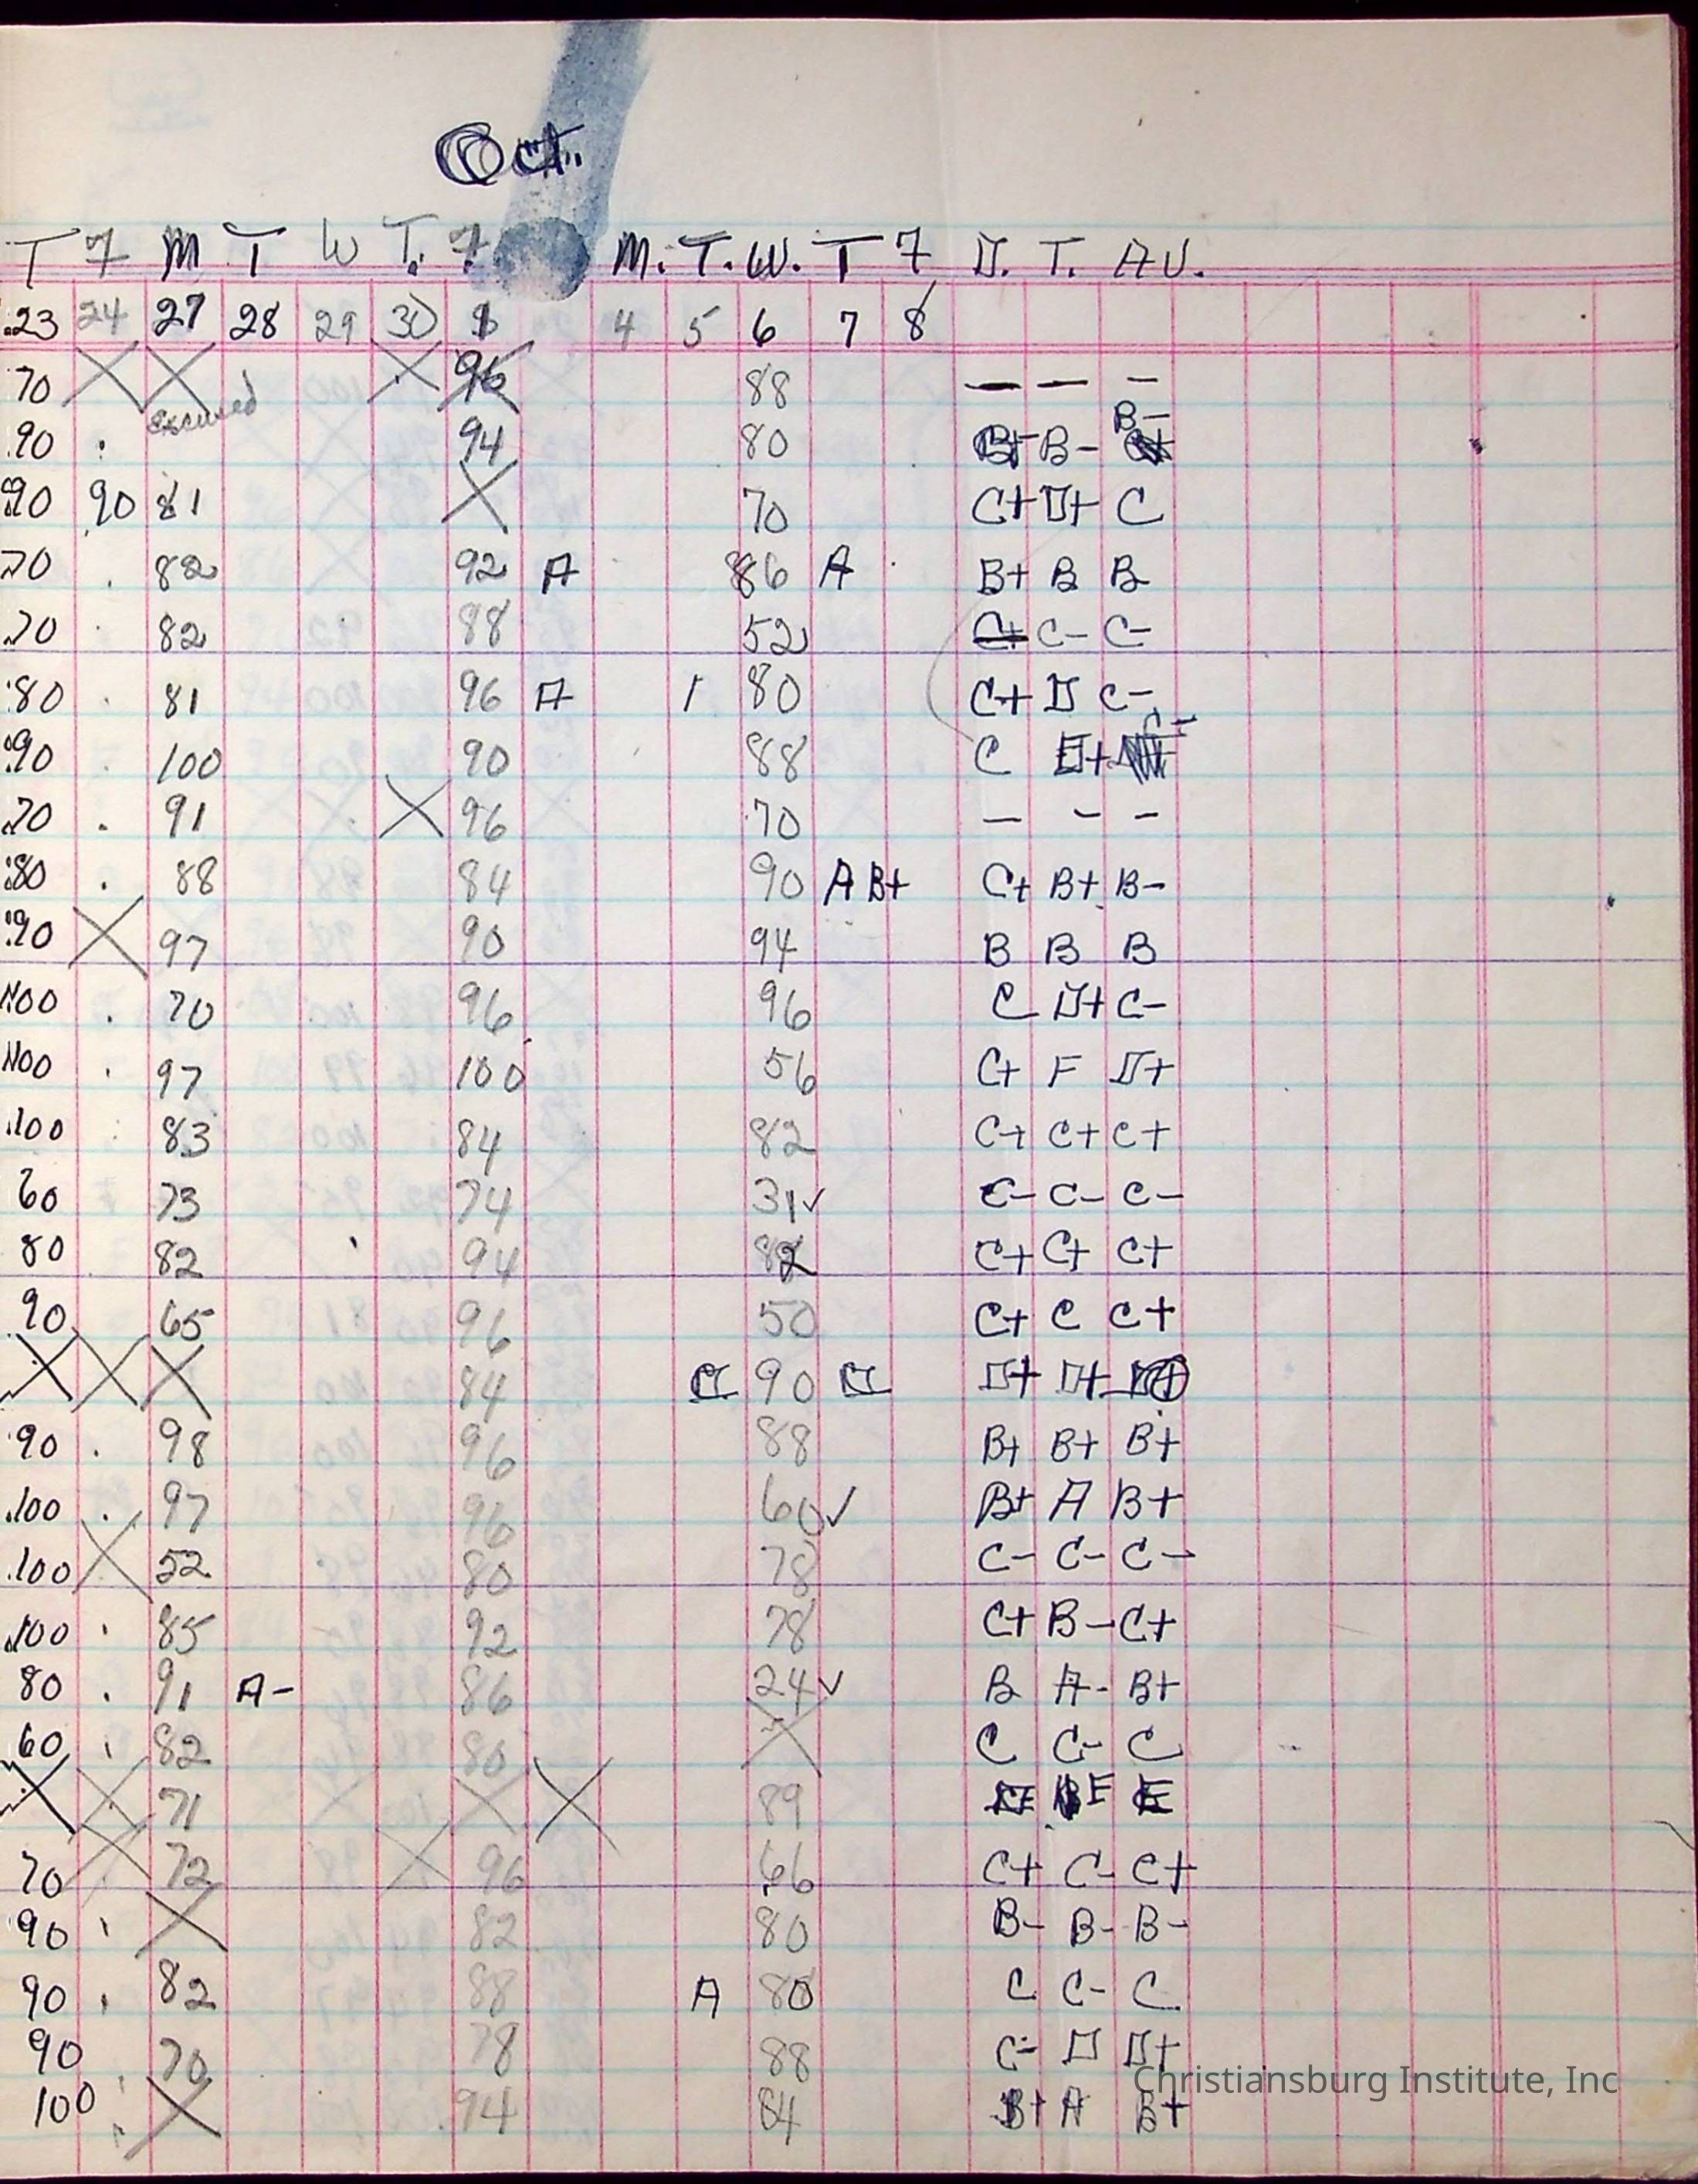 Oct.
T F M T W T. F M. T. W. T F D. T. AV.
23 24 27 28 29 30 1 4 5 6 7 8
70 96 88 — — —
excused
90 94 80 B- B-
90 90 81 70 C+ D+ C
70 82 92 A 86 A B+ B B
70 82 88 52 C+ C- C-
80 81 96 A 1 80 C+ D C-
90 100 90 88 C E+ C-
70 91 96 70 — - -
80 88 84 90 A B+ C+ B+ B-
90 97 90 94 B B B
100 70 96 96 C D+ C-
100 97 100 56 C+ F D+
100 83 84 82 C+ C+ C+
60 73 74 31✓ C- C- C-
80 82 94 82 C+ C+ C+
90 65 96 50 C+ C C+
84 90 D+ D+
90 98 96 88 B+ B+ B+
100 97 96 60✓ B+ A B+
100 52 80 78 C- C- C-
100 85 92 78 C+ B- C+
80 91 A- 86 24✓ B A- B+
60 82 80 C C- C
71 89 E E
70 72 96 66 C+ C- C+
90 82 80 B- B- B-
90 82 88 A 80 C C- C
90 70 78 88 C- D D+
100 94 84 B+ A B+
Christiansburg Institute, Inc